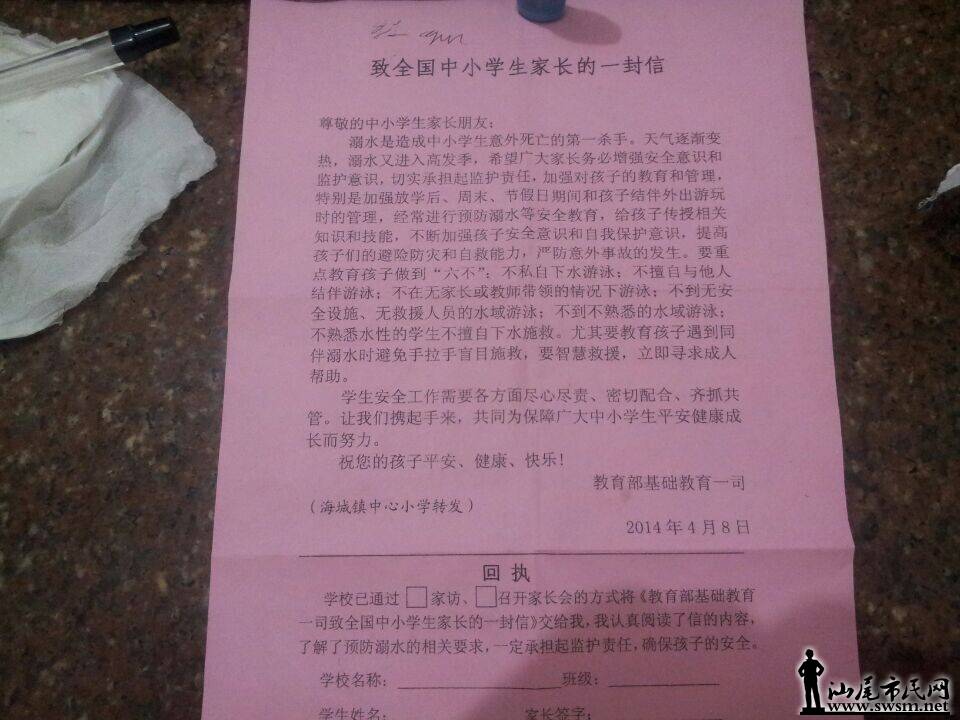 致全国中小学生家长的一封信
尊敬的中小学生家长朋友：
溺水是造成中小学生意外死亡的第一杀手。天气逐渐变
热，溺水又进入高发季，希望广大家长务必增强安全意识和
监护意识，切实承担起监护责任，加强对孩子的教育和管理，
特别是加强放学后、周末、节假日期间和孩子结伴外出游玩
时的管理，经常进行预防溺水等安全教育，给孩子传授相关
知识和技能，不断加强孩子安全意识和自我保护意识，提高
孩子们的避险防灾和自救能力，严防意外事故的发生。要重
点教育孩子做到“六不”：不私自下水游泳；不擅自与他人
结伴游泳；不在无家长或教师带领的情况下游泳；不到无安
全设施、无救援人员的水域游泳；不到不熟悉的水域游泳；
不熟悉水性的学生不擅自下水施救。尤其要教育孩子遇到同
伴溺水时避免手拉手盲目施救，要智慧救援，立即寻求成人
帮助。
学生安全工作需要各方面尽心尽责、密切配合、齐抓共
管。让我们携起手来，共同为保障广大中小学生平安健康成
长而努力。
祝您的孩子平安、健康、快乐！
教育部基础教育一司
（海城镇中心小学转发）
2014年4月8日
回执
学校已通过□家访、□召开家长会的方式将《教育部基础教育
一司致全国中小学生家长的一封信》交给我，我认真阅读了信的内容，
了解了预防溺水的相关要求，一定承担起监护责任，确保孩子的安全。
学校名称：____________班级：__________
学生姓名：____________家长签字：
汕尾市民网
www.swsm.net